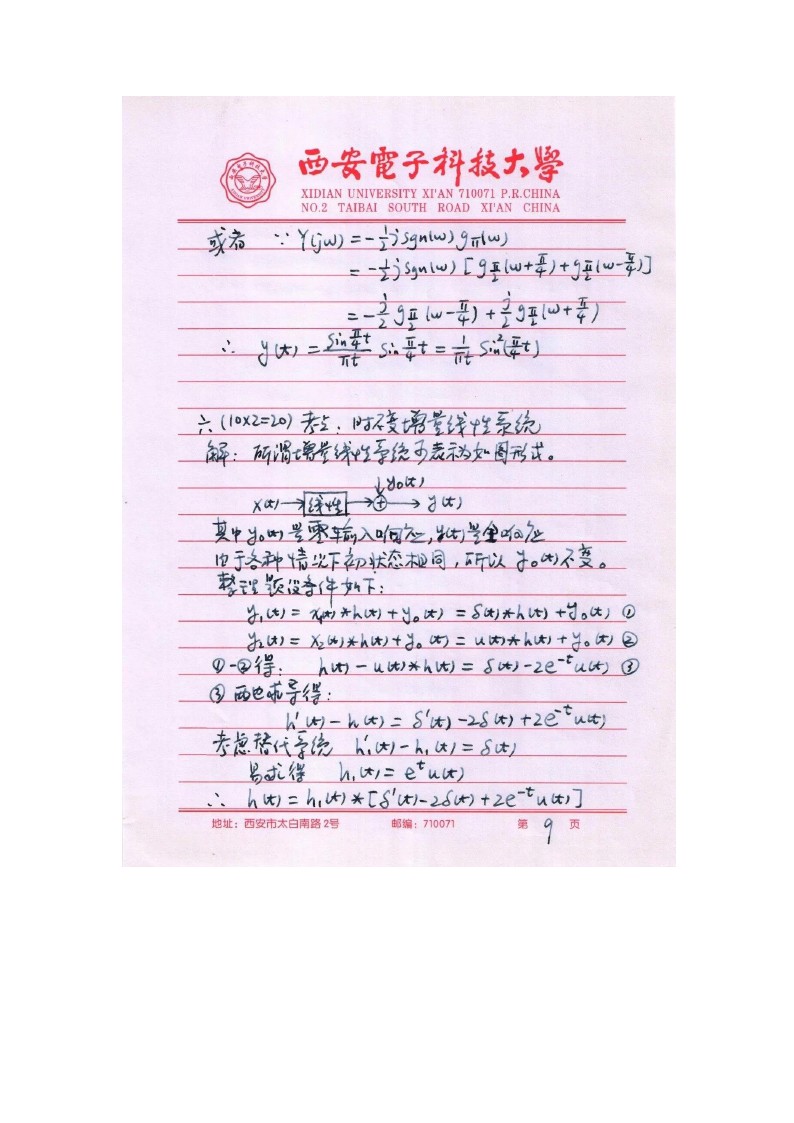 西安電子科技大學
XIDIAN UNIVERSITY XI'AN 710071 P.R.CHINA
NO.2 TAIBAI SOUTH ROAD XI'AN CHINA
或者 ∵ Y(jω) = -½jsgn(ω) gπ(ω)
= -½jsgn(ω) [g_{π/2}(ω+π/4)+g_{π/2}(ω-π/4)]
= -j/2 g_{π/2}(ω-π/4) + j/2 g_{π/2}(ω+π/4)
∴ y(t) = (sin π/4 t)/(πt) sin π/4 t = 1/(πt) sin²(π/4 t)
六、(10×2=20) 考点:时不变增量线性系统
解:所谓增量线性系统可表示为如图形式。
y₀(t)
x(t) → 线性 → ⊕ → y(t)
其中y₀(t)是零输入响应,y(t)是全响应
由于各种情况下初状态相同,所以y₀(t)不变。
整理题设条件如下:
y₁(t) = x₁(t)*h(t)+y₀(t) = δ(t)*h(t)+y₀(t) ①
y₂(t) = x₂(t)*h(t)+y₀(t) = u(t)*h(t)+y₀(t) ②
①-②得: h(t)-u(t)*h(t) = δ(t)-2e⁻ᵗu(t) ③
③两边求导得:
h'(t)-h(t) = δ'(t)-2δ(t)+2e⁻ᵗu(t)
考虑替代系统 h₁'(t)-h₁(t) = δ(t)
易求得 h₁(t) = eᵗu(t)
∴ h(t) = h₁(t)*[δ'(t)-2δ(t)+2e⁻ᵗu(t)]
地址:西安市太白南路2号 邮编:710071 第 9 页